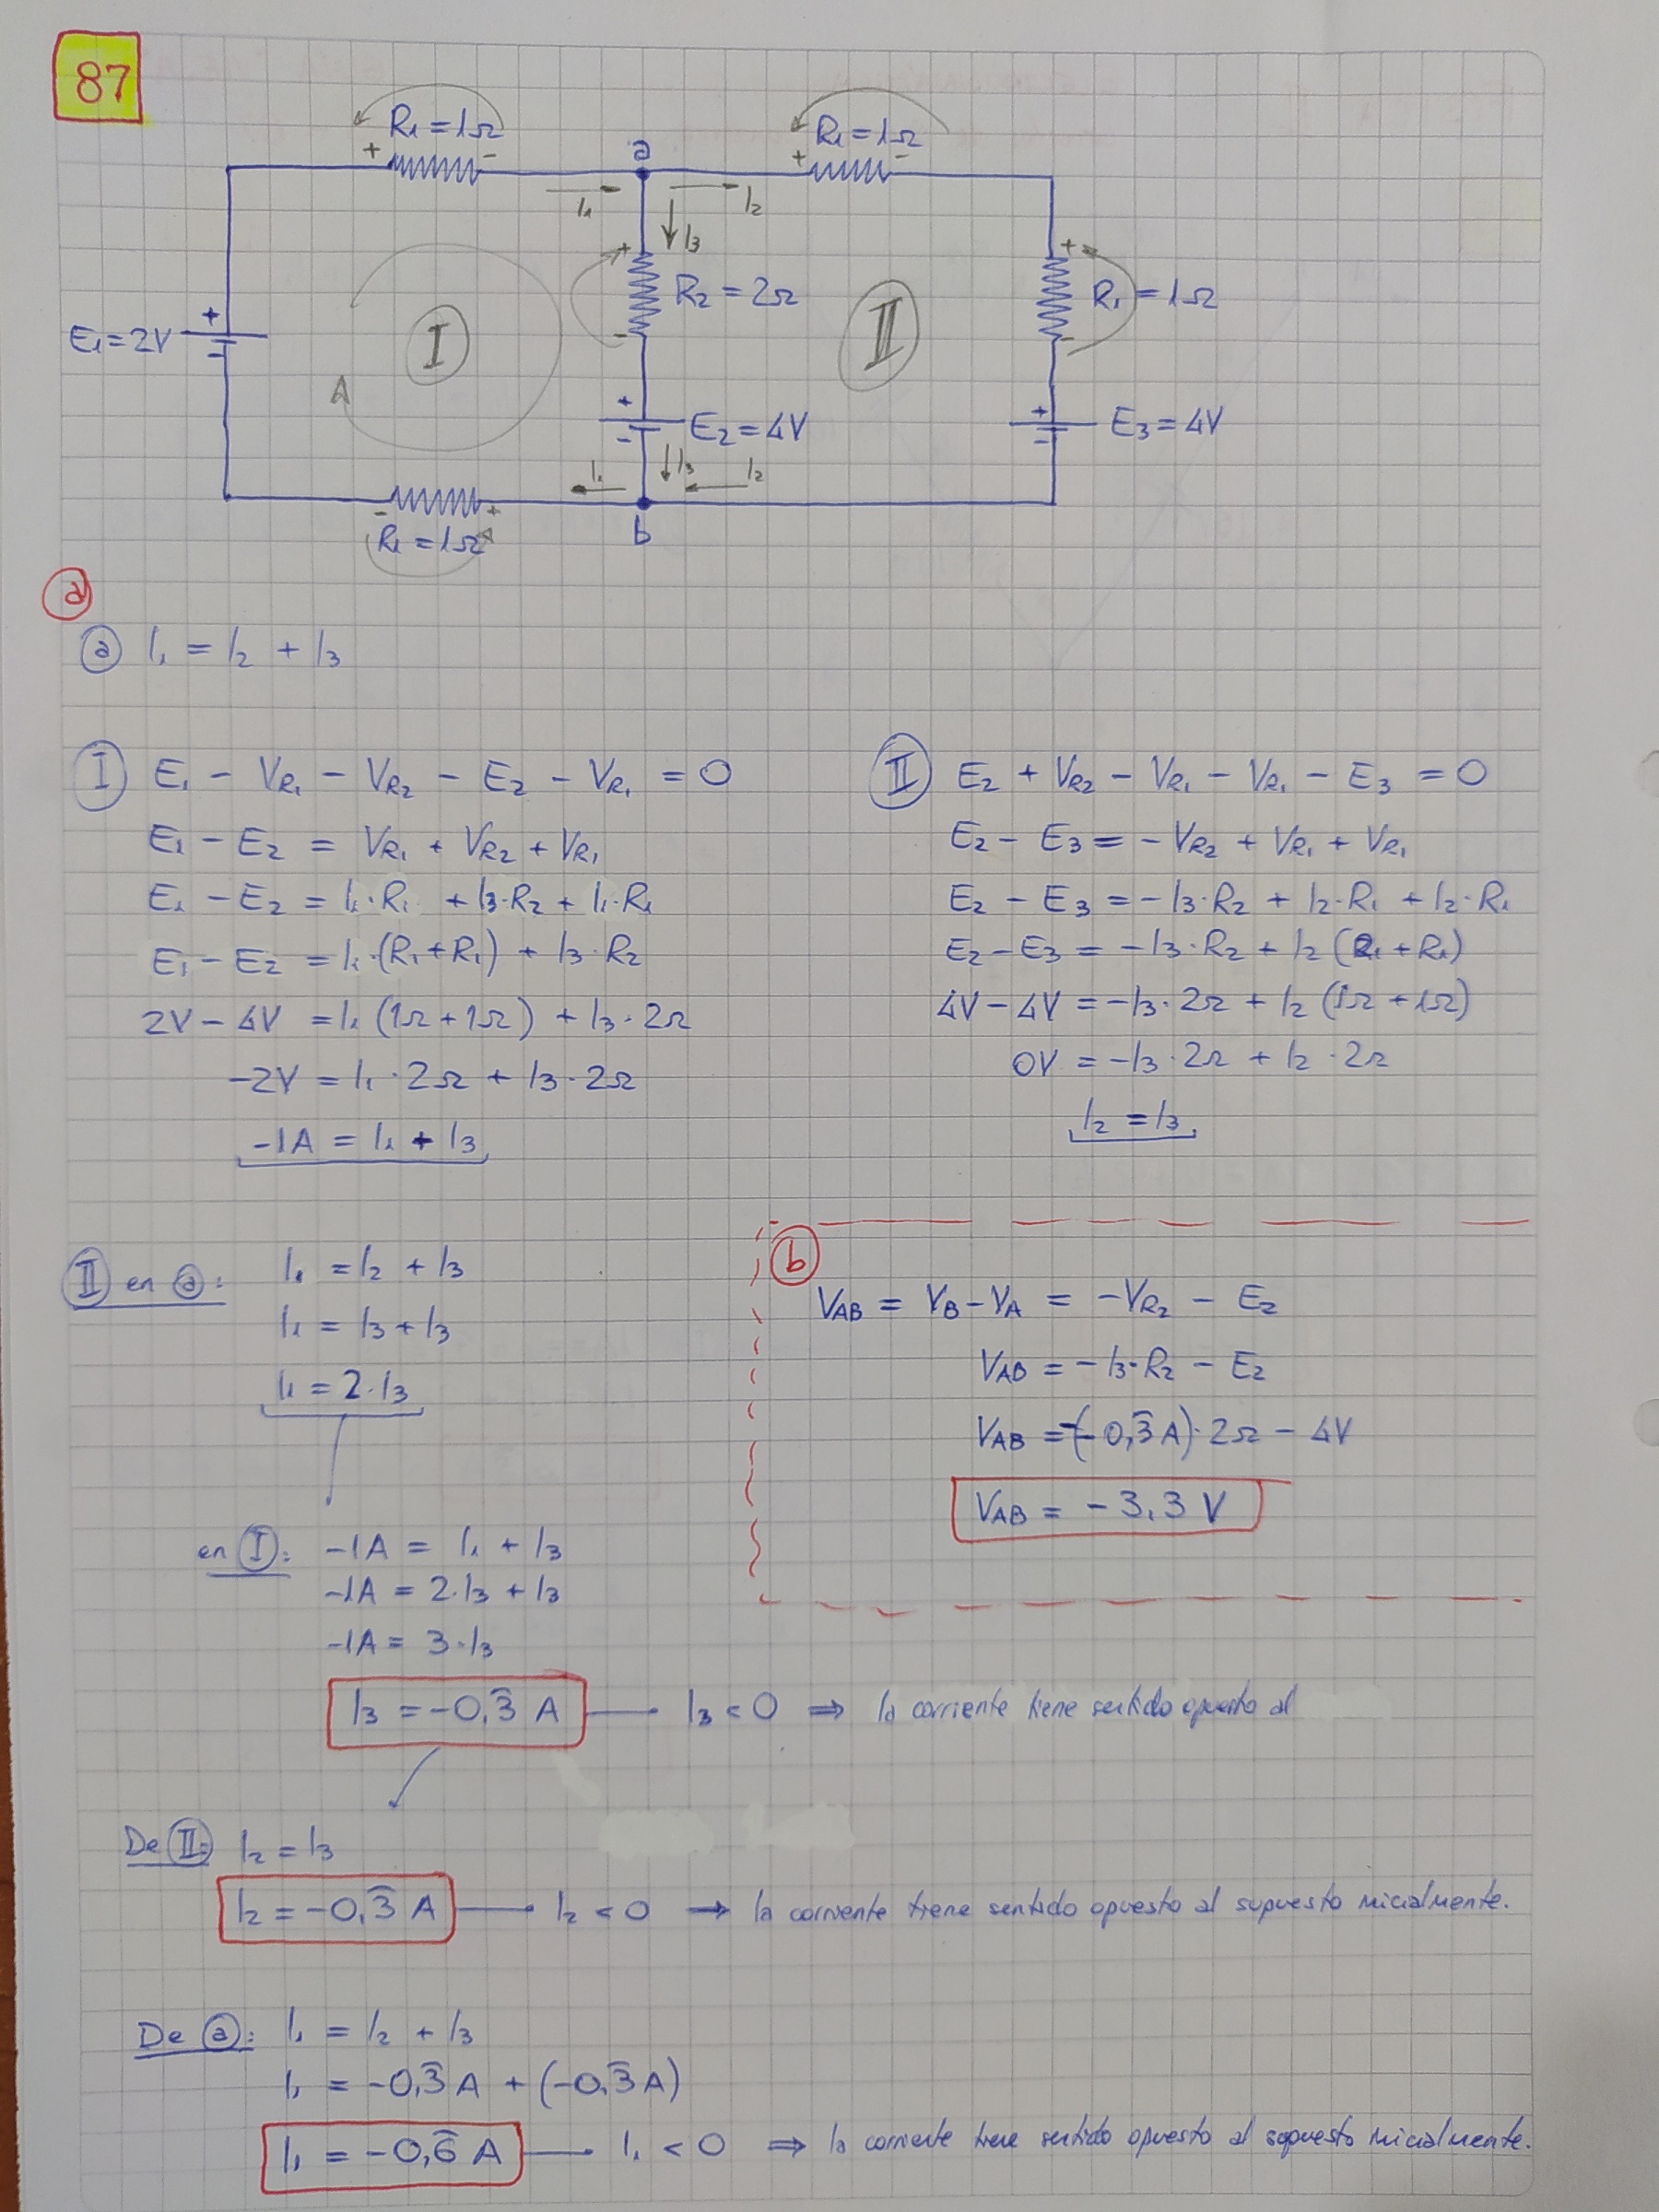 87
R₁ = 1Ω
R₁ = 1Ω
+ -
a
+ -
I₁
I₂
I₃
+
+
R₂ = 2Ω
R₁ = 1Ω
I
II
E₁ = 2V
+
-
-
-
A
+
-
E₂ = 4V
+
-
E₃ = 4V
I₁
I₃
I₂
- +
R₁ = 1Ω
b
a
ⓐ I₁ = I₂ + I₃
Ⓘ E₁ - VR₁ - VR₂ - E₂ - VR₁ = 0
E₁ - E₂ = VR₁ + VR₂ + VR₁
E₁ - E₂ = I₁·R₁ + I₃·R₂ + I₁·R₁
E₁ - E₂ = I₁·(R₁+R₁) + I₃·R₂
2V - 4V = I₁ (1Ω+1Ω) + I₃·2Ω
-2V = I₁·2Ω + I₃·2Ω
-1A = I₁ + I₃
II E₂ + VR₂ - VR₁ - VR₁ - E₃ = 0
E₂ - E₃ = -VR₂ + VR₁ + VR₁
E₂ - E₃ = -I₃·R₂ + I₂·R₁ + I₂·R₁
E₂ - E₃ = -I₃·R₂ + I₂ (R₁ + R₁)
4V - 4V = -I₃·2Ω + I₂ (1Ω + 1Ω)
0V = -I₃·2Ω + I₂·2Ω
I₂ = I₃
II en ⓐ: I₁ = I₂ + I₃
I₁ = I₃ + I₃
I₁ = 2·I₃
en Ⓘ: -1A = I₁ + I₃
-1A = 2·I₃ + I₃
-1A = 3·I₃
I₃ = -0,3̂ A I₃ < 0 ⇒ la corriente tiene sentido opuesto al
b
VAB = VB - VA = -VR₂ - E₂
VAB = -I₃·R₂ - E₂
VAB = -(-0,3̂ A)·2Ω - 4V
VAB = -3,3 V
De II: I₂ = I₃
I₂ = -0,3̂ A I₂ < 0 → la corriente tiene sentido opuesto al supuesto inicialmente.
De ⓐ: I₁ = I₂ + I₃
I₁ = -0,3̂ A + (-0,3̂ A)
I₁ = -0,6̂ A I₁ < 0 ⇒ la corriente tiene sentido opuesto al supuesto inicialmente.